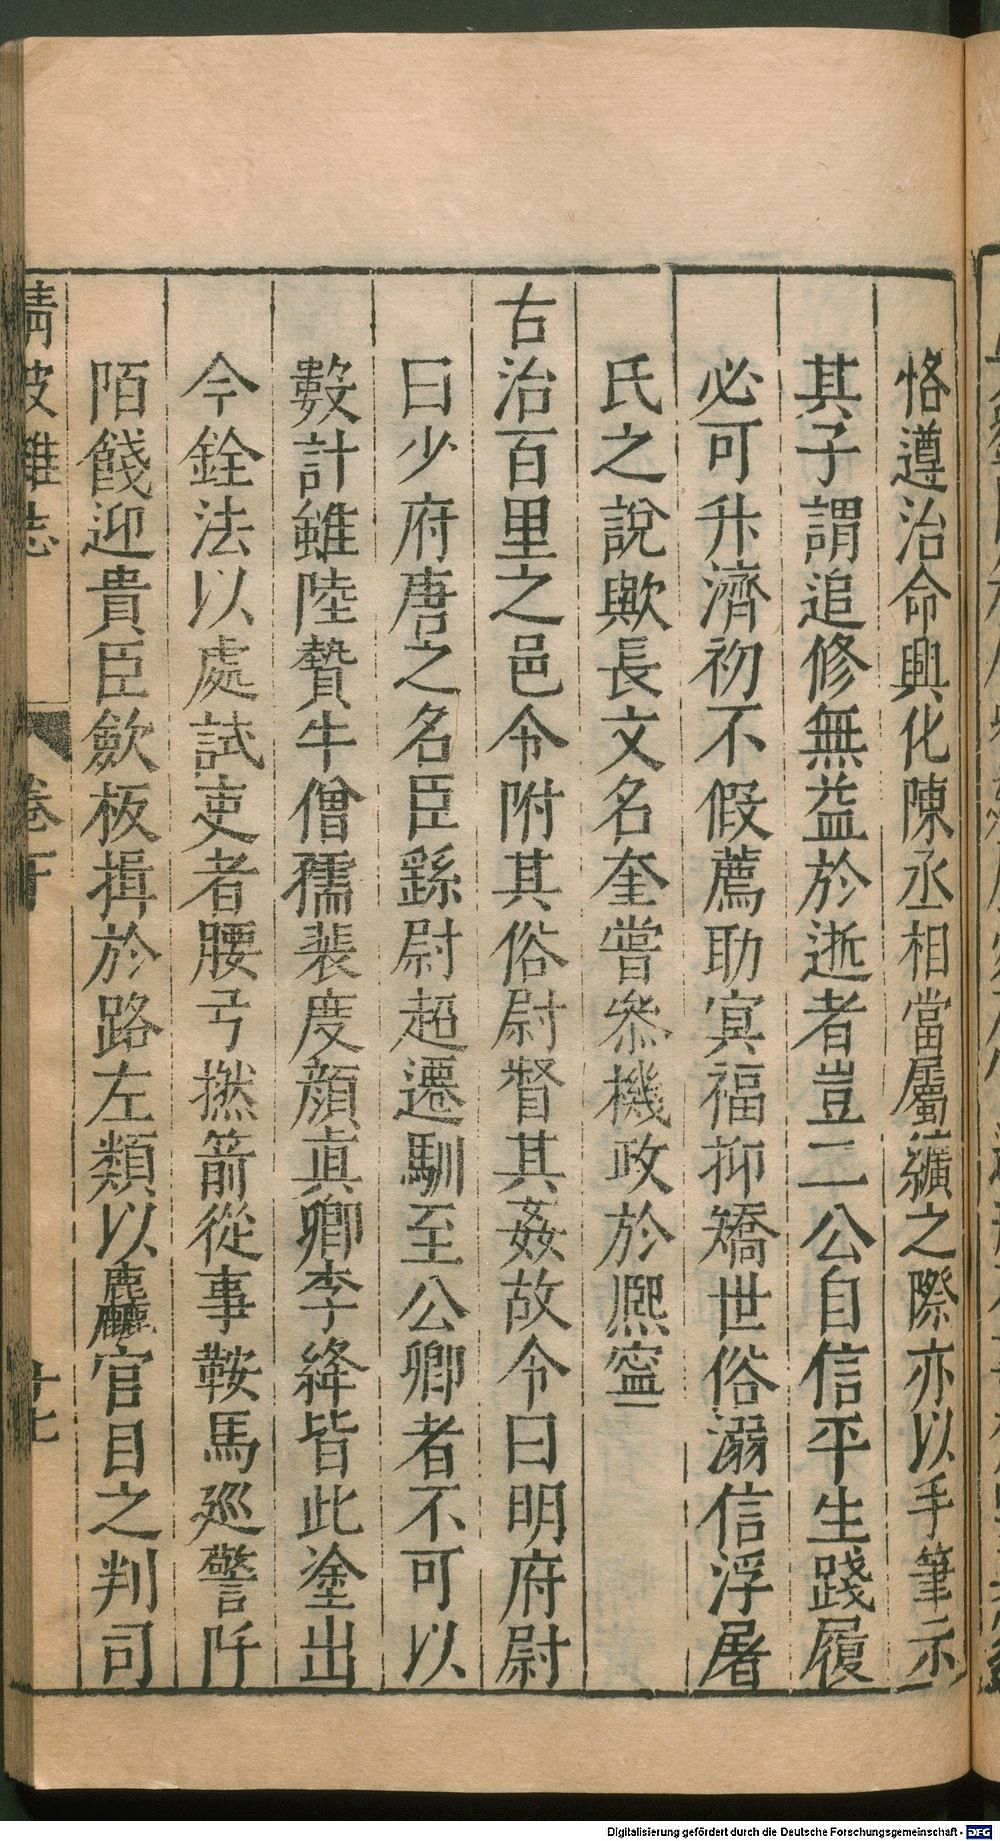 恪遵治命興化陳丞相當屬纊之際亦以手筆示
其子謂追修無益於逝者豈二公自信平生踐履
必可升濟初不假薦助冥福抑矯世俗溺信浮屠
氏之說歟長文名奎嘗叅機政於熈寧
古治百里之邑令附其俗尉督其姦故令曰明府尉
曰少府唐之名臣繇尉超遷馴至公卿者不可以
數計雖陸贄牛僧孺裴度顏真卿李絳皆此塗出
今銓法以處試吏者腰弓撚箭從事鞍馬廵警阡
陌餞迎貴臣歛板揖於路左類以麄官目之判司
清波雜志
卷下
十七
Digitalisierung gefördert durch die Deutsche Forschungsgemeinschaft - DFG